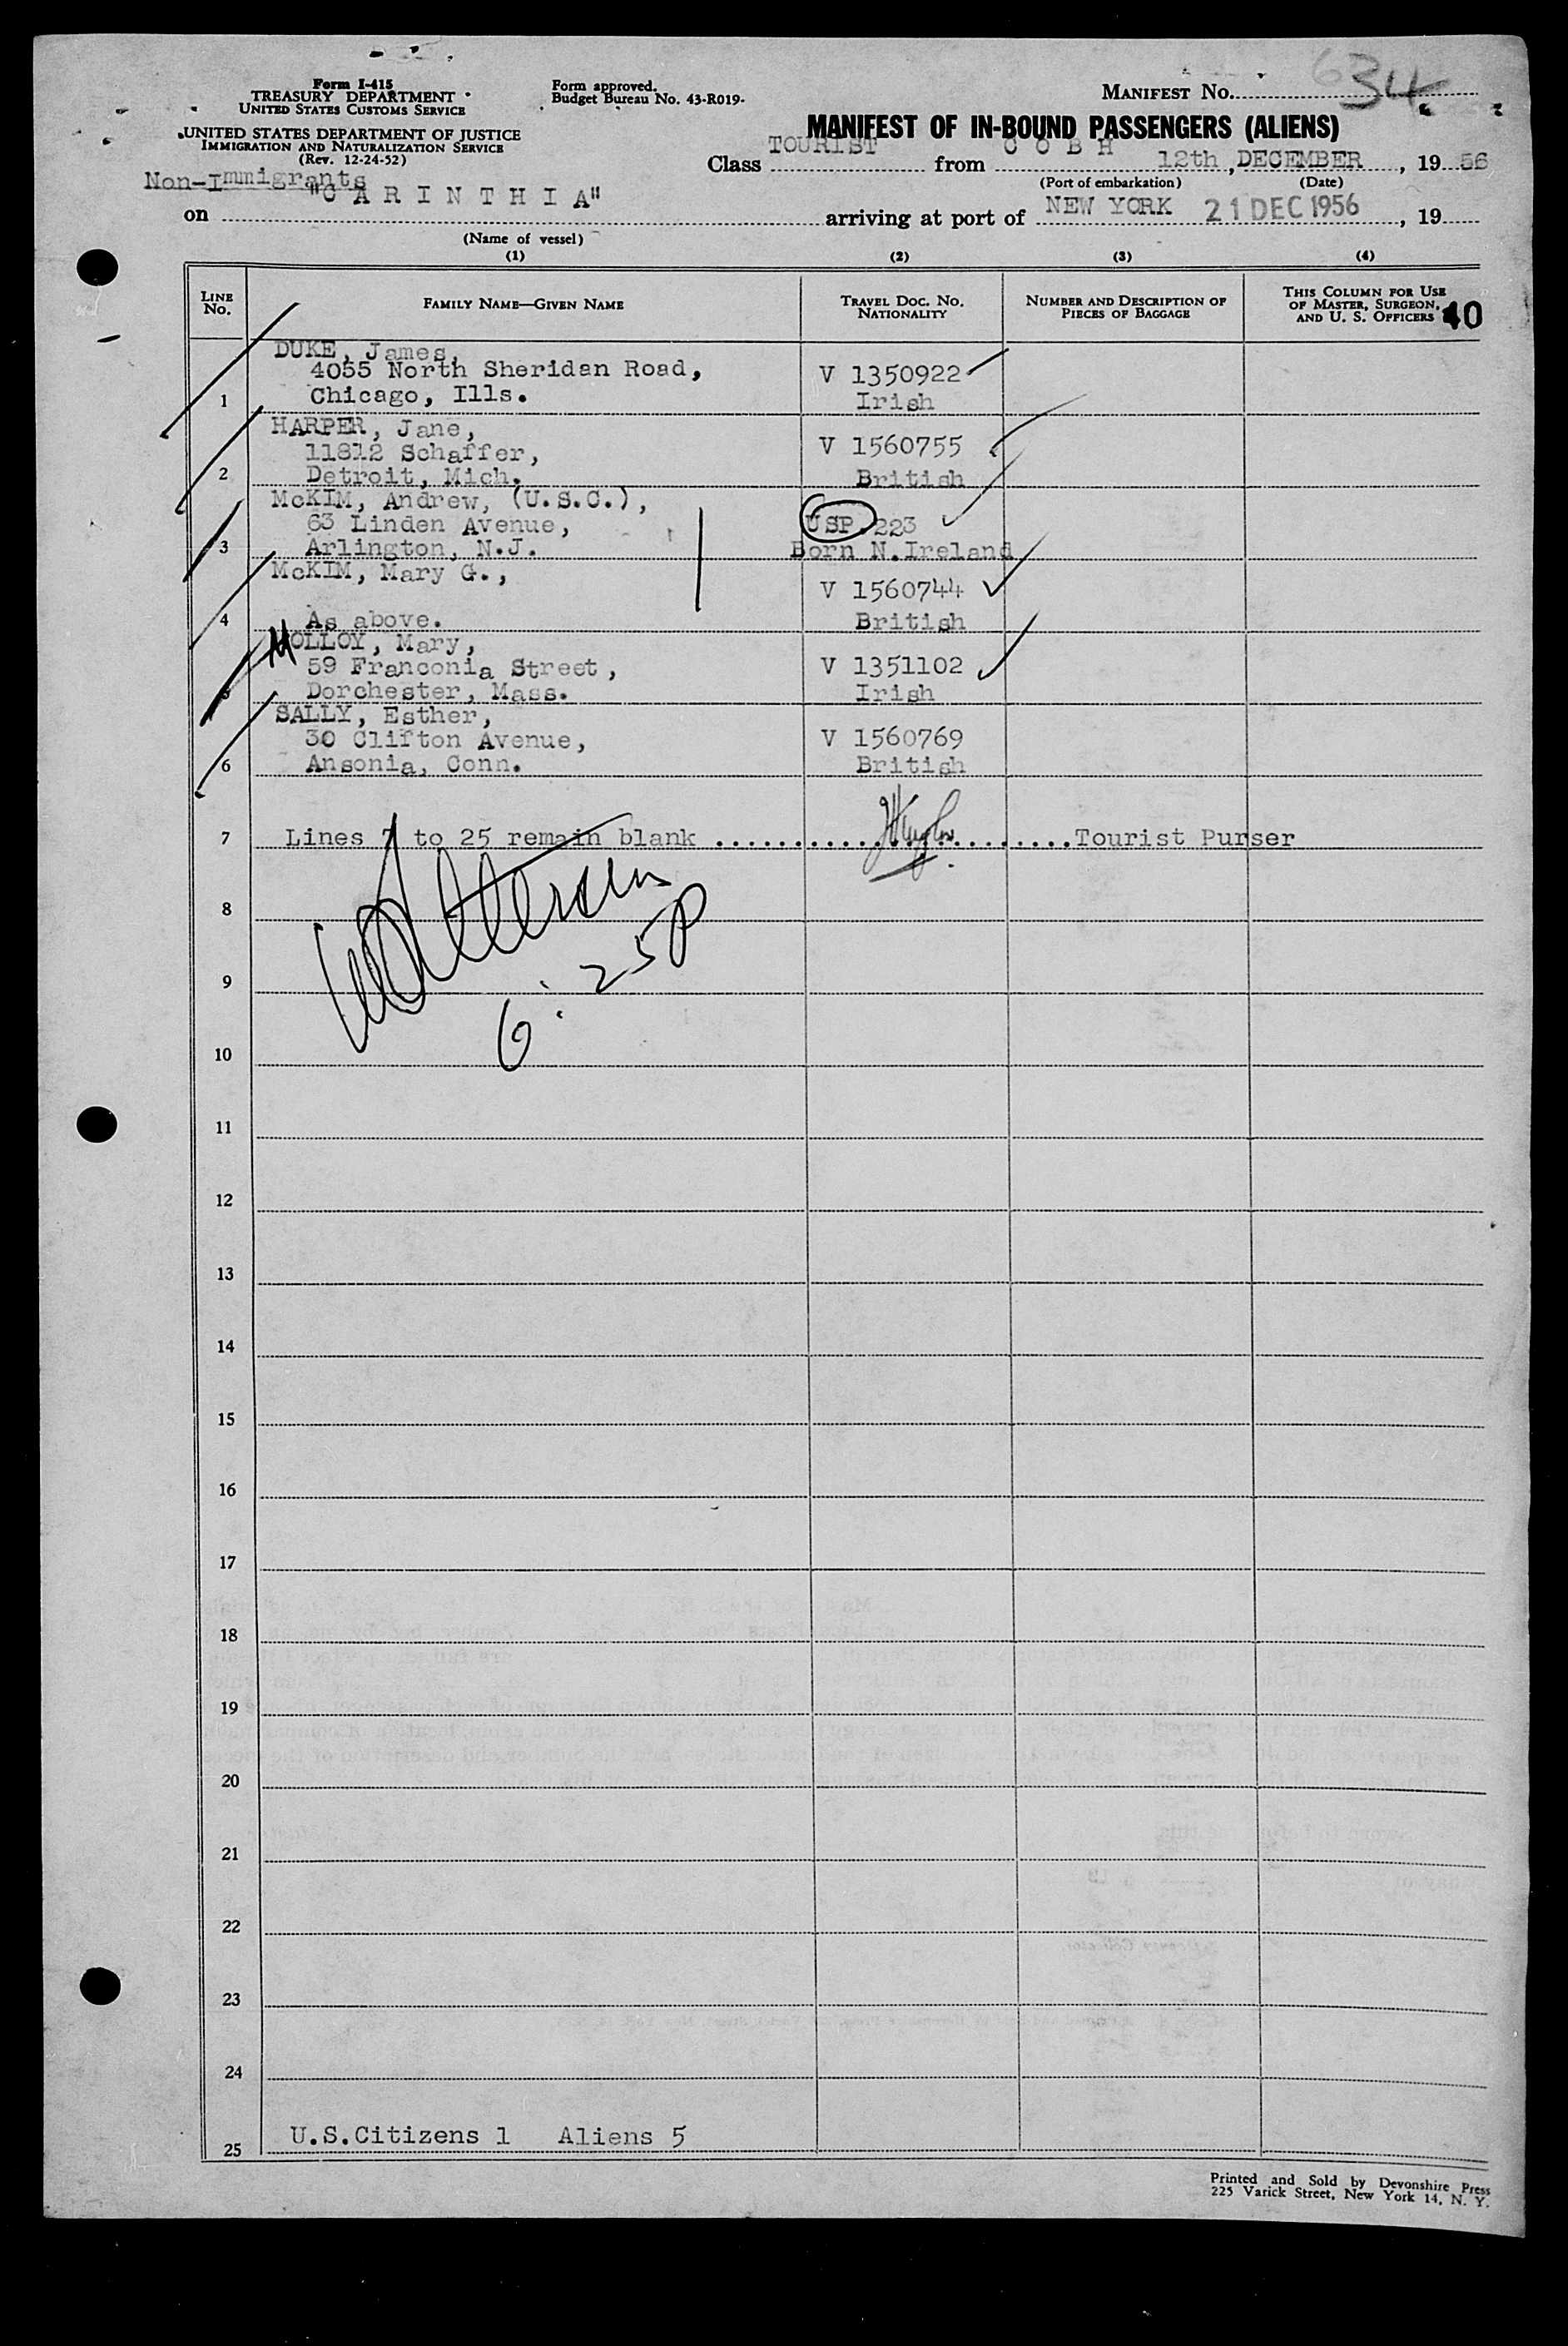 Form I-415
TREASURY DEPARTMENT
UNITED STATES CUSTOMS SERVICE
UNITED STATES DEPARTMENT OF JUSTICE
IMMIGRATION AND NATURALIZATION SERVICE
(Rev. 12-24-52)
Form approved.
Budget Bureau No. 43-R019.
MANIFEST No. 634
MANIFEST OF IN-BOUND PASSENGERS (ALIENS)
Class TOURIST from C O B H 12th, DECEMBER, 19 56
(Port of embarkation) (Date)
Non-Immigrants
on "C A R I N T H I A" arriving at port of NEW YORK 21 DEC 1956, 19
(Name of vessel)
(1) (2) (3) (4)
LINE No. FAMILY NAME—GIVEN NAME TRAVEL DOC. No. NATIONALITY NUMBER AND DESCRIPTION OF PIECES OF BAGGAGE THIS COLUMN FOR USE OF MASTER, SURGEON, AND U. S. OFFICERS 40
DUKE, James,
4055 North Sheridan Road, V 1350922
1 Chicago, Ills. Irish
HARPER, Jane,
11812 Schaffer, V 1560755
2 Detroit, Mich. British
McKIM, Andrew, (U.S.C.),
63 Linden Avenue, USP. 223
3 Arlington, N.J. Born N.Ireland
McKIM, Mary G.,
V 1560744
4 As above. British
MOLLOY, Mary,
59 Franconia Street, V 1351102
5 Dorchester, Mass. Irish
SALLY, Esther,
30 Clifton Avenue, V 1560769
6 Ansonia, Conn. British
7 Lines 7 to 25 remain blank ........................Tourist Purser
8
6:25P
9
10
11
12
13
14
15
16
17
18
19
20
21
22
23
24
25 U.S.Citizens 1 Aliens 5
Printed and Sold by Devonshire Press
225 Varick Street, New York 14, N. Y.